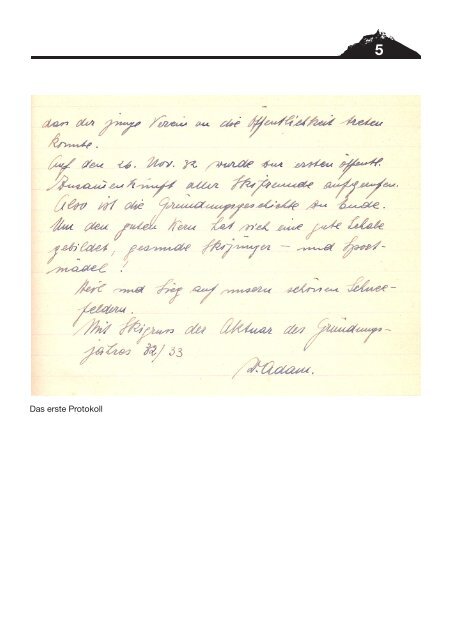 5
dass der junge Verein an die Öffentlichkeit treten
konnte.
Auf den 26. Nov. 32 wurde zur ersten öffentl.
Zusammenkunft aller Skifreunde aufgerufen.
Also ist die Gründungsgeschichte zu Ende.
Um den guten Kern hat sich eine gute Schale
gebildet, gesunde Skijünger – und Sport-
mädel!
Heil und Sieg auf unsern schönen Schnee-
feldern.
Mit Skigruss der Aktuar des Gründungs-
jahres 32/33
Adam.
Das erste Protokoll